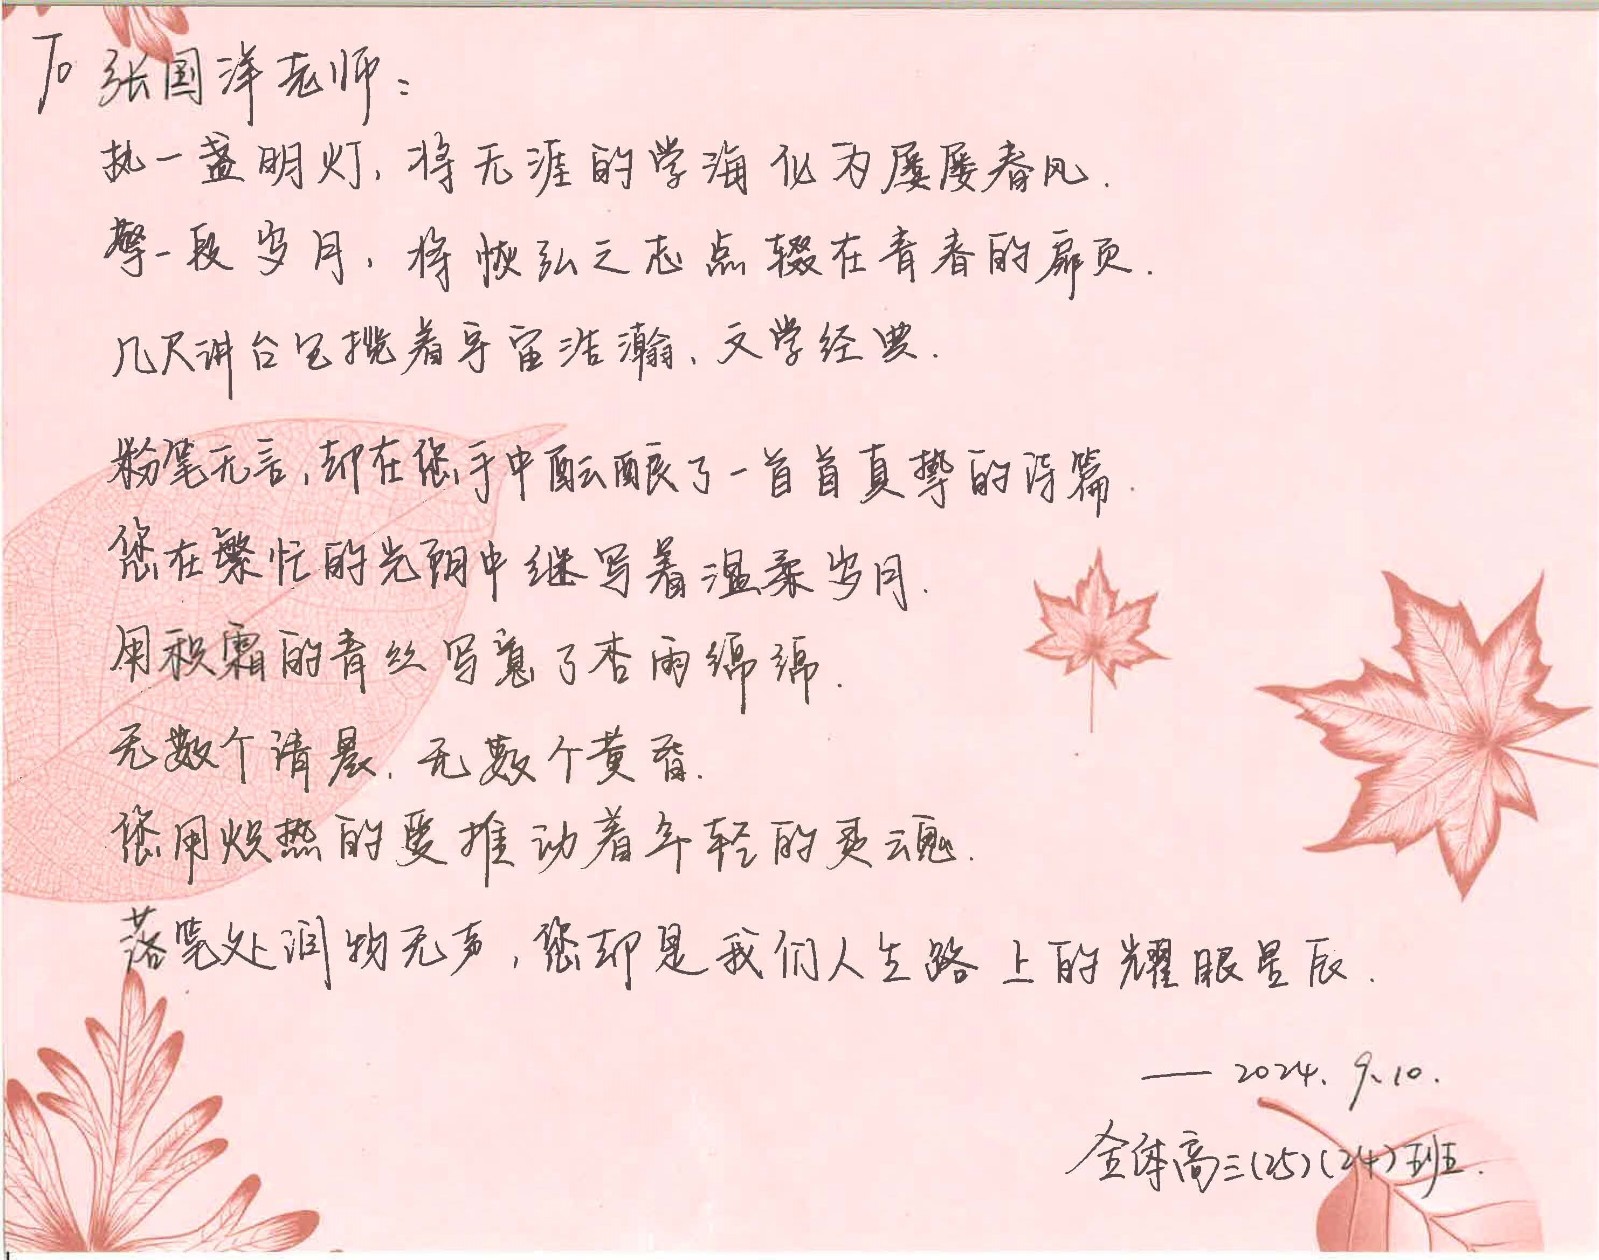 To 张国洋老师：
执一盏明灯，将无涯的学海化为屡屡春风．
擎一段岁月，将恢弘之志点辍在青春的扉页．
几尺讲台包揽着宇宙浩瀚、文学经典．
粉笔无言，却在您手中酝酿了一首首真挚的诗篇．
您在繁忙的光阴中继写着温柔岁月．
用积霜的青丝写意了杏雨绵绵．
无数个清晨，无数个黄昏．
您用炽热的爱推动着年轻的灵魂．
落笔处润物无声，您却是我们人生路上的耀眼星辰．
—— 2024. 9. 10.
全体高三(25)(24)班．